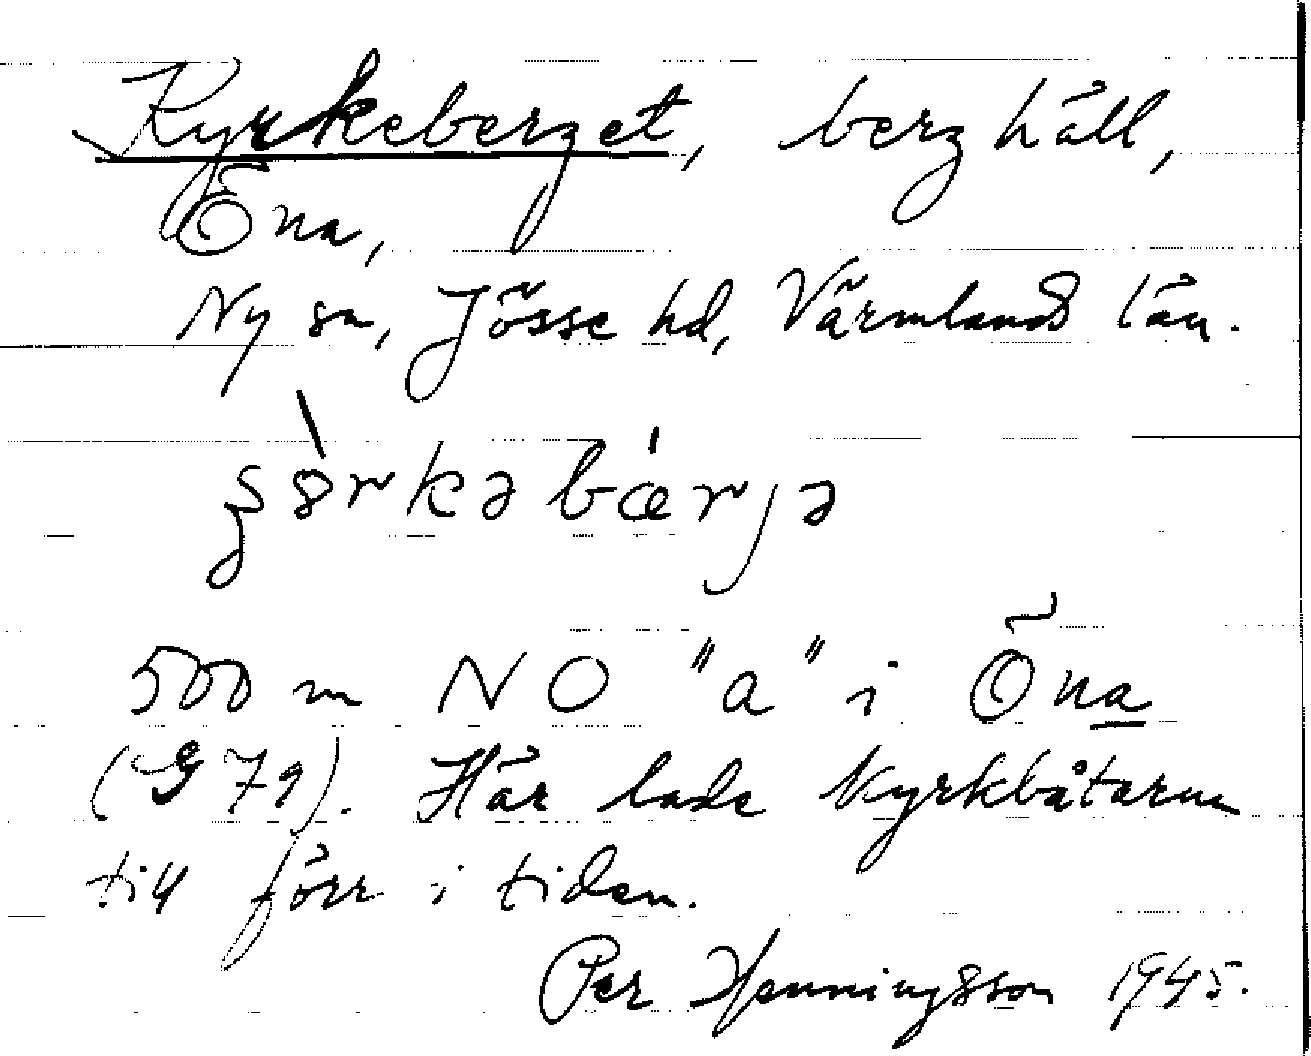 Kyrkeberget, berghäll,
Öna,
Ny sn, Jösse hd, Värmlands län.
500 m NO "a" i Öna
(G 79). Här lade kyrkbåtarna
till förr i tiden.
Per Henningsson 1945.